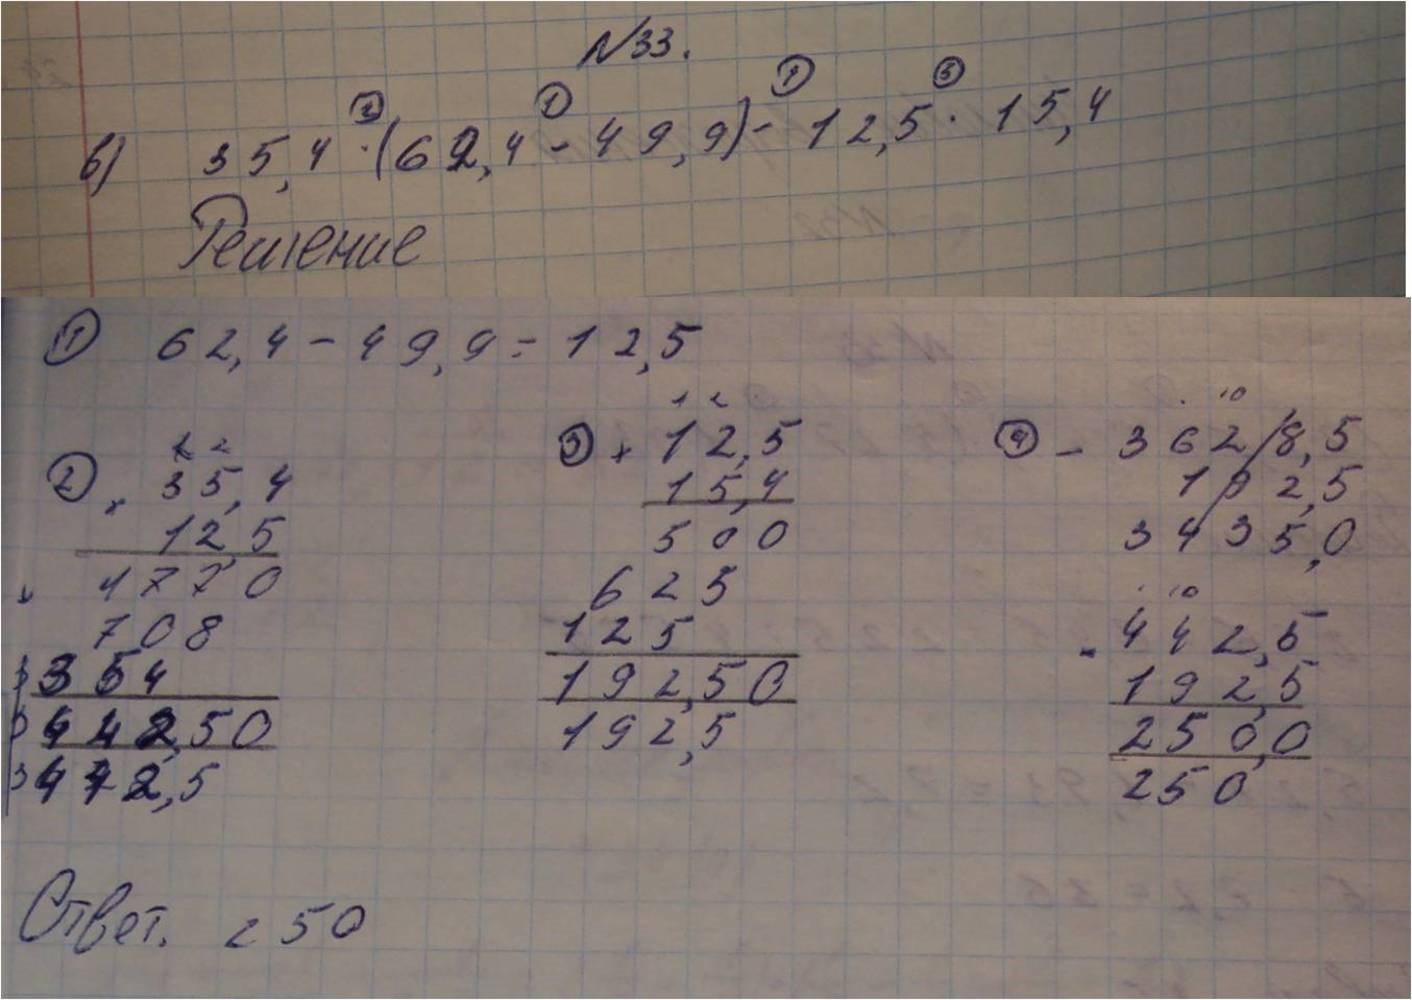 N33.
② ① ④ ③
в) 35,4 · (62,4 - 49,9) - 12,5 · 15,4
Решение
① 62,4 - 49,9 = 12,5
② × 35,4
12,5
1770
708
354
442,50
442,5
③ × 12,5
15,4
500
625
125
192,50
192,5
④ - 3628,5
192,5
3435,0
- 442,5
192,5
250,0
250
Ответ. 250